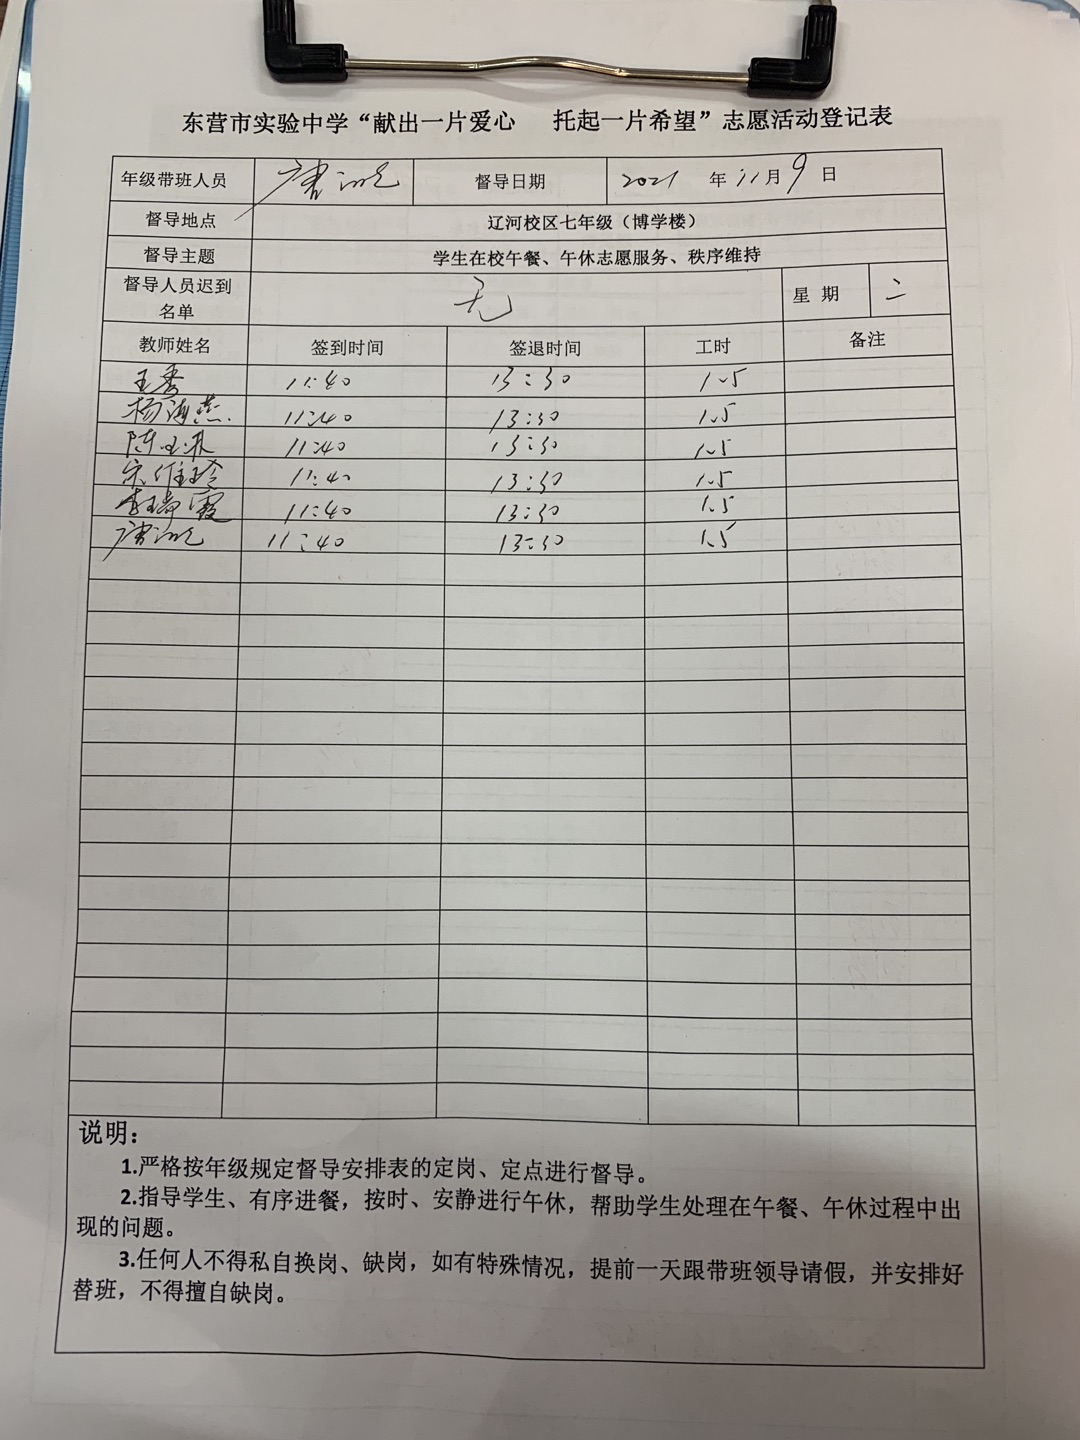 东营市实验中学“献出一片爱心 托起一片希望”志愿活动登记表
年级带班人员 唐 督导日期 2021 年 11 月 9 日
督导地点 辽河校区七年级（博学楼）
督导主题 学生在校午餐、午休志愿服务、秩序维持
督导人员迟到名单 无 星 期 二
教师姓名 签到时间 签退时间 工时 备注
王秀 11:40 13:30 1.5
杨海燕 11:40 13:30 1.5
陈 11:40 13:30 1.5
宋维玲 11:40 13:30 1.5
李 霞 11:40 13:30 1.5
唐 11:40 13:30 1.5
说明：
1.严格按年级规定督导安排表的定岗、定点进行督导。
2.指导学生、有序进餐，按时、安静进行午休，帮助学生处理在午餐、午休过程中出
现的问题。
3.任何人不得私自换岗、缺岗，如有特殊情况，提前一天跟带班领导请假，并安排好
替班，不得擅自缺岗。